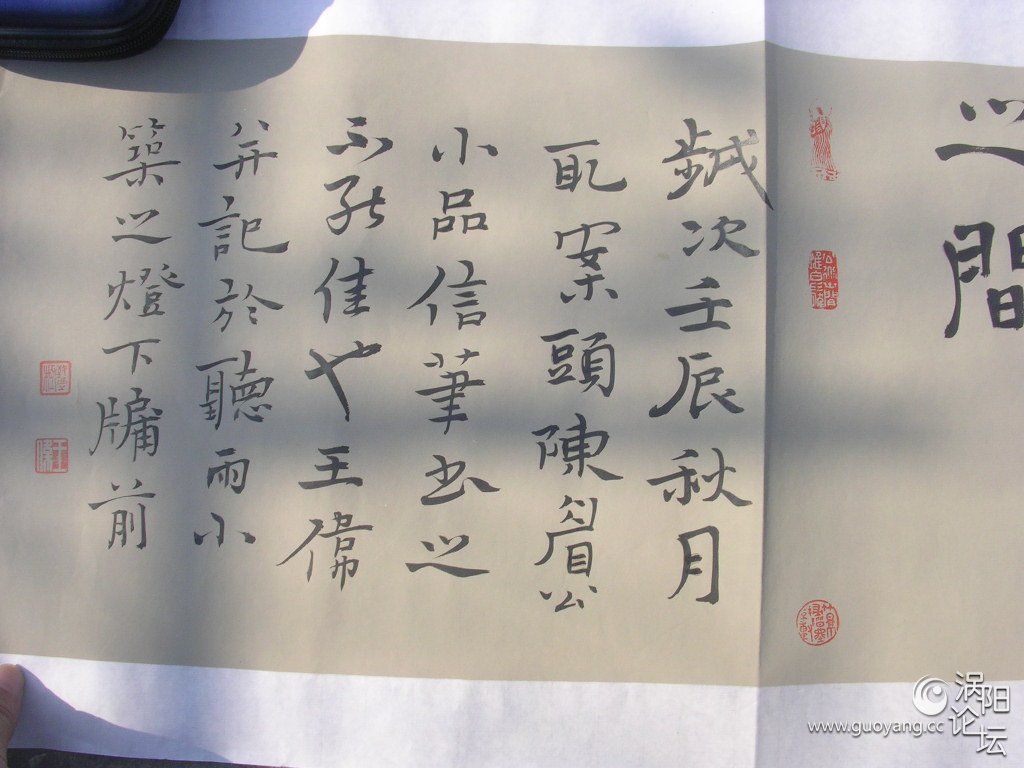 之間
歲次壬辰秋月
取案頭陳眉公
小品信筆書之
不能佳也王偉
并記於聽雨小
築之燈下牖前
涡阳论坛
www.guoyang.cc